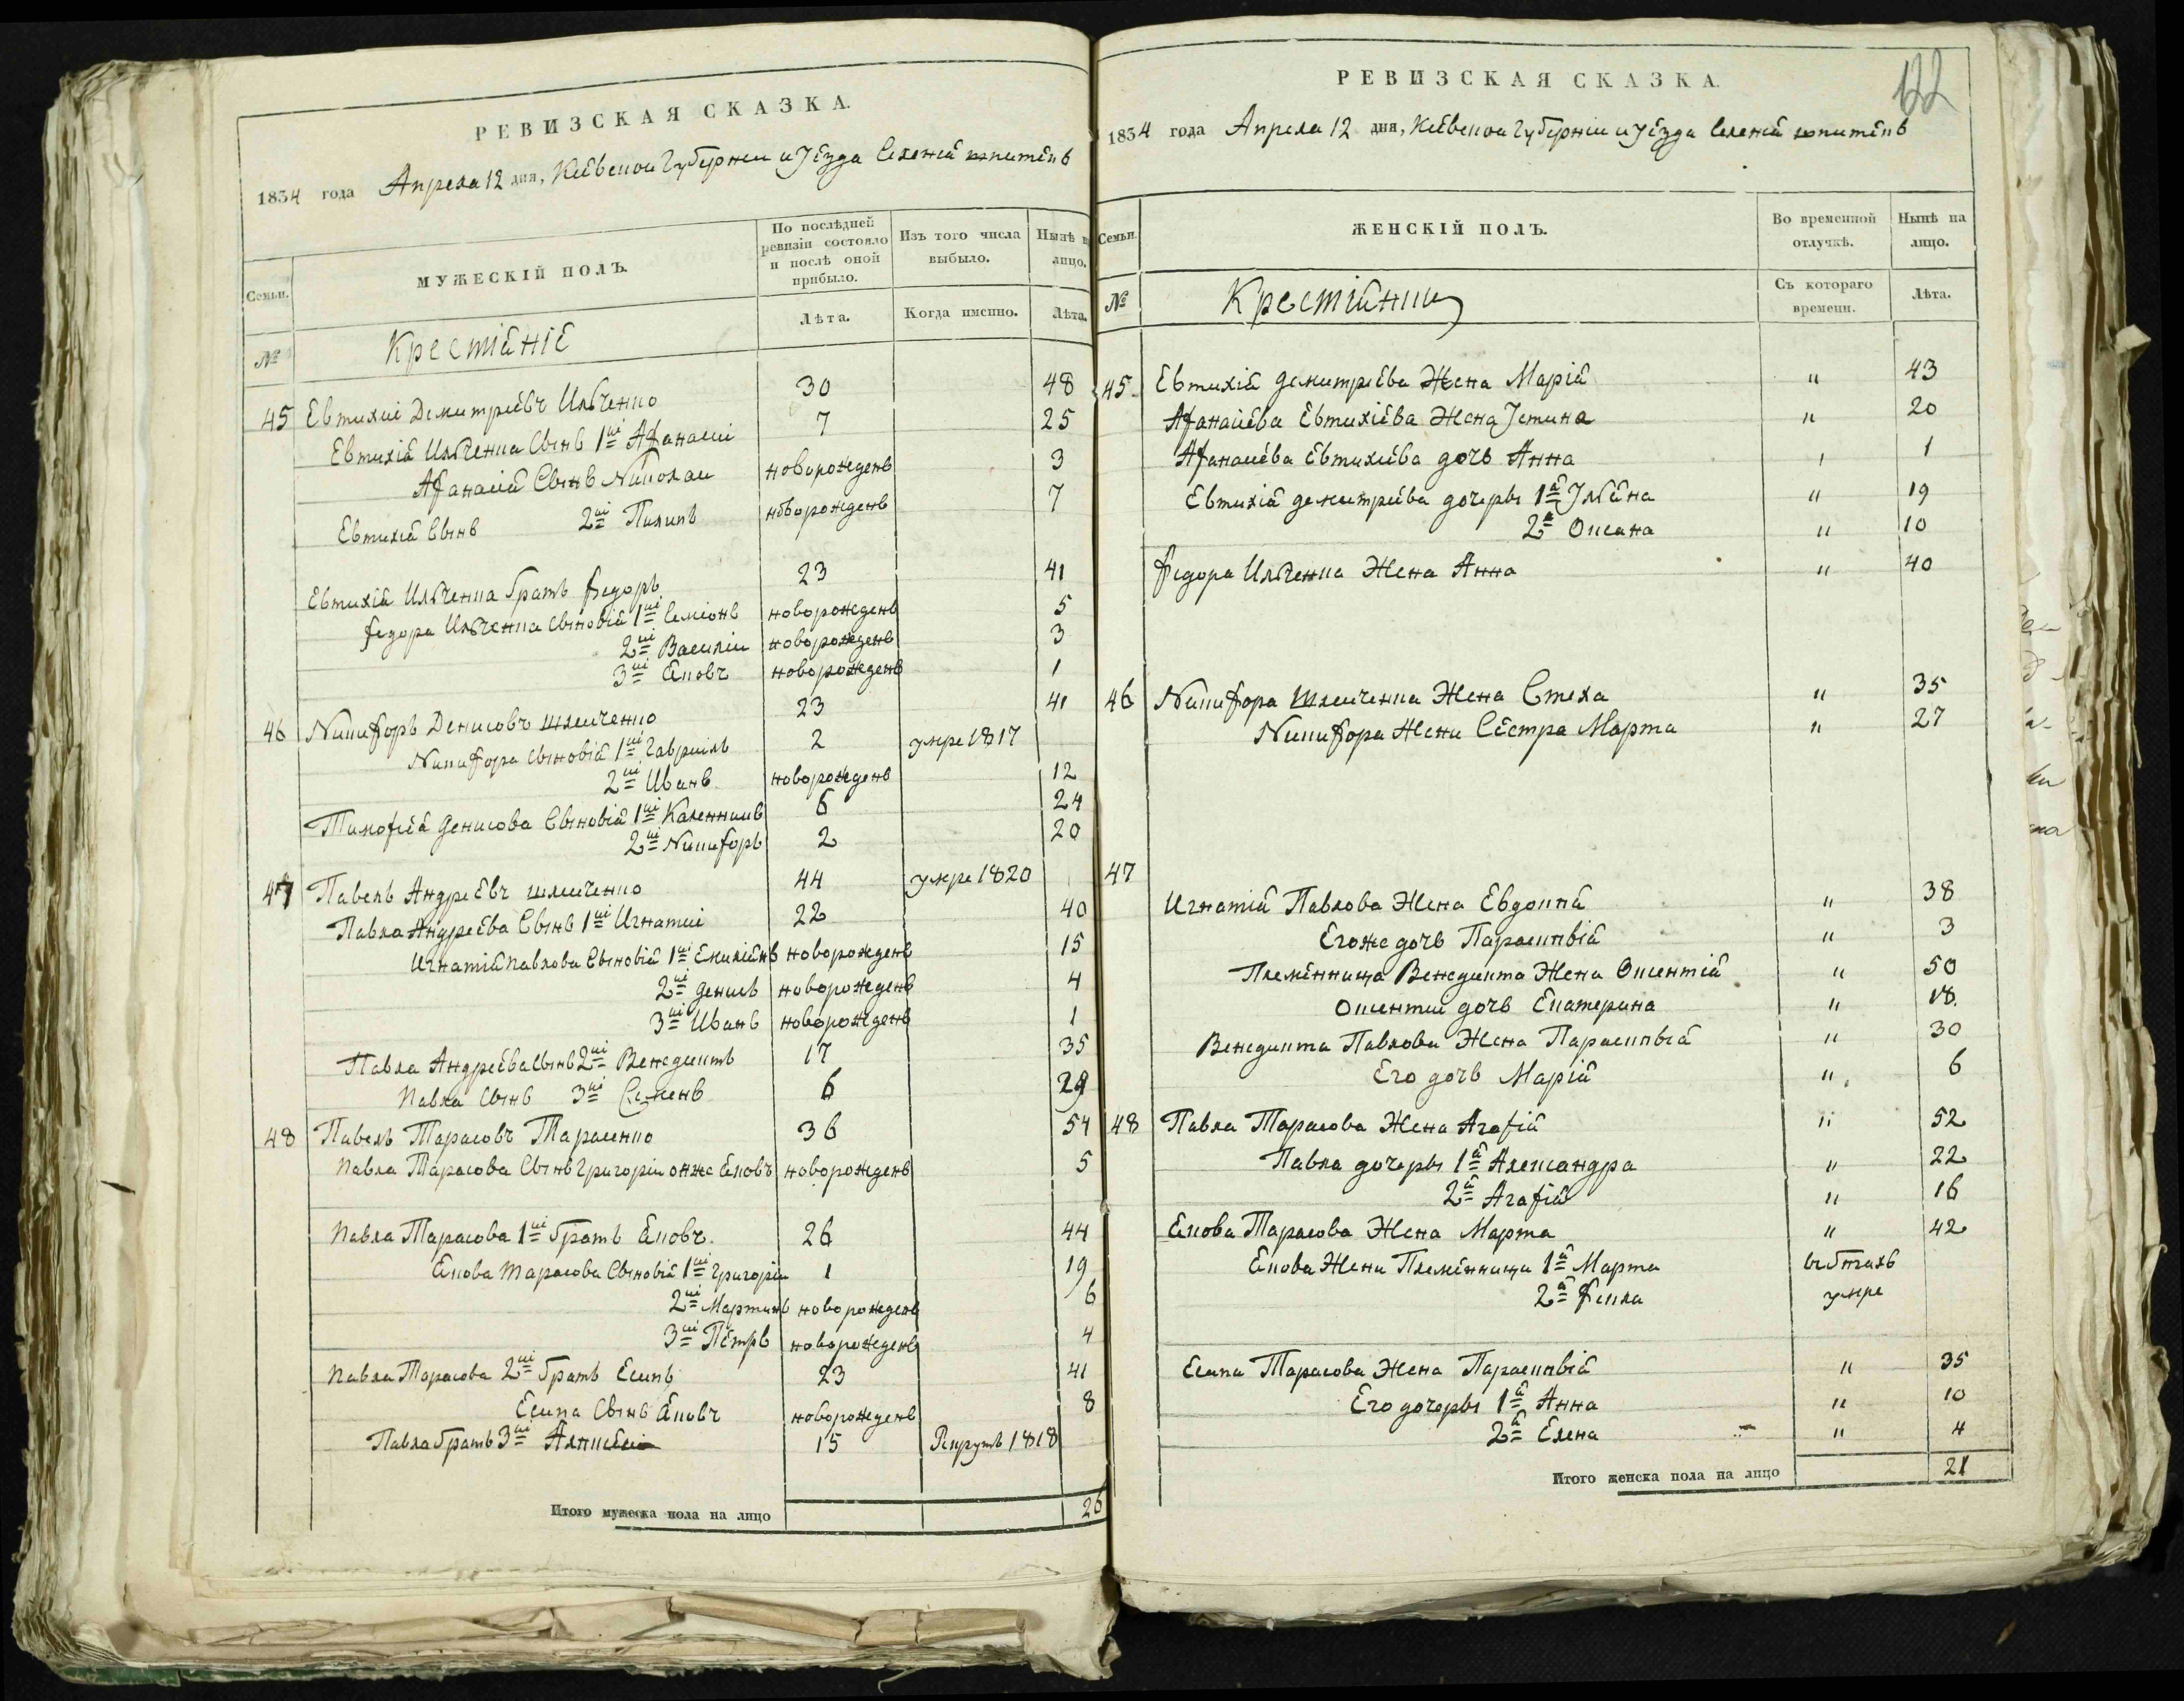 РЕВИЗСКАЯ СКАЗКА.
1834 года Апреля 12 дня, Кіевской Губерніи и Уезда Селенія
Семьи.
МУЖЕСКІЙ ПОЛЪ.
По послѣдней ревизіи состояло и послѣ оной прибыло.
Изъ того числа выбыло.
Нынѣ на лицо.
№
Крестіяніе
Лѣта.
Когда именно.
Лѣта.
45 Евтихіи Демитріевъ Ильченко 30 48
Евтихія Ильченка Сынъ 1ыи Афанасіи 7 25
Афанасія Сынъ Николаи новорожденъ 3
Евтихія Сынъ 2ыи Пилипъ новорожденъ 7
Евтихія Ильченка братъ Федоръ 23 41
Федора Ильченка сыновія 1ыи Семіонъ новорожденъ 5
2ыи Василіи новорожденъ 3
3ыи Яковъ новорожденъ 1
46 Никифоръ Денисовъ 23 41
Никифора сыновія 1ыи Гавріилъ 2 умре 1817
2ыи Иванъ новорожденъ 12
Тимофія Денисова Сыновія 1ыи Каленникъ 6 24
2ыи Никифоръ 2 20
47 Павелъ Андреевъ 44 умре 1820
Павла Андреева Сынъ 1ыи Игнатіи 22 40
Игнатія павлова Сыновія 1ыи Емиліянъ новорожденъ 15
2ыи денисъ новорожденъ 4
3ыи Иванъ новорожденъ 1
Павла Андреева Сынъ 2ыи Венедиктъ 17 35
Павла Сынъ 3ыи Семенъ 6 24
48 Павелъ Тарасовъ Тарасенко 36 54
Павла Тарасова Сынъ Григоріи онже Яковъ новорожденъ 5
Павла Тарасова 1ыи братъ Яковъ. 26 44
Якова Тарасова Сыновія 1ыи Григоріи 1 19
2ыи Мартинъ новорожденъ 6
3ыи Петръ новорожденъ 4
Павла Тарасова 2ыи братъ Есипъ 23 41
Есипа Сынъ Яковъ новорожденъ 8
Павла братъ 3ыи 15 Рекрутъ 1818
Итого мужеска пола на лицо 26
122
РЕВИЗСКАЯ СКАЗКА.
1834 года Апреля 12 дня, Кіевской Губерніи и Уезда Селенія
Семьи.
ЖЕНСКІЙ ПОЛЪ.
Во временной отлучкѣ.
Нынѣ на лицо.
№
Крестіянки
Съ котораго времени.
Лѣта.
45 Евтихія демитріева Жена Марія " 43
Афанасіева Евтихіева Жена Устина " 20
Афанасіева Евтихіева дочь Анна 1
Евтихія демитріева дочеры 1я Уляна " 19
2я Оксана " 10
Федора Ильченка Жена Анна " 40
46 Никифора Жена Стеха " 35
Никифора Жени Сестра Марта " 27
47
Игнатія Павлова Жена Евдокия " 38
Егоже дочь Параскивія " 3
Племенница Венедикта Жена Оксентія " 50
Оксентіи дочь Екатерина " 18.
Венедикта Павлова Жена Параскивія " 30
Его дочь Марія " 6
48 Павла Тарасова Жена Агафія " 52
Павла дочеры 1я Александра " 22
2я Агафія " 16
Якова Тарасова Жена Марта " 42
Якова Жени Племенници 1я Марта въ бегахъ
2я Фекла умре
Есипа Тарасова Жена Параскивія " 35
Его дочеры 1я Анна " 10
2я Елена " 4
Итого женска пола на лицо 21